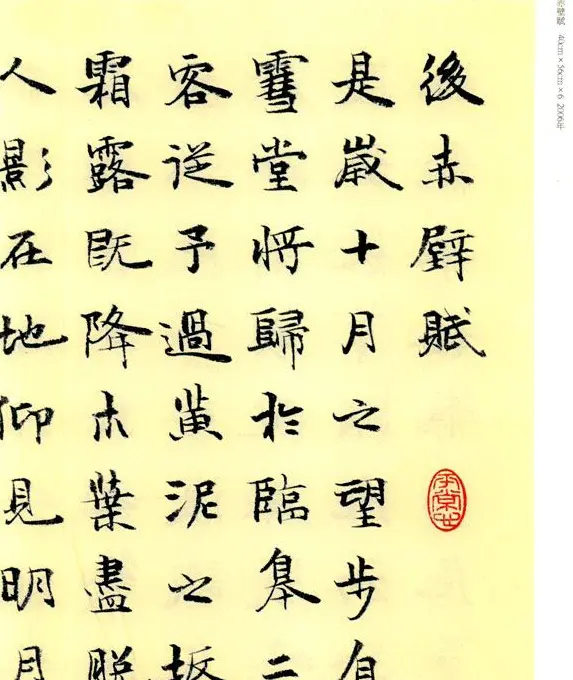 後赤壁賦
是歲十月之望步自
雪堂將歸於臨皋二
客從予過黃泥之坂
霜露既降木葉盡脫
人影在地仰見明月
赤壁賦 40cm×56cm×6 2006年